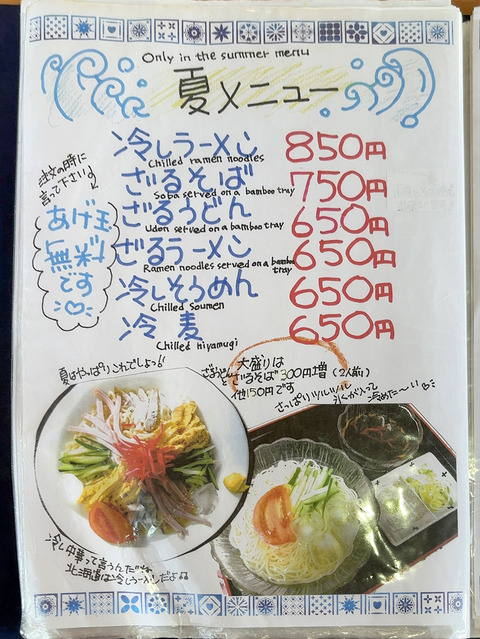 Only in the summer menu
夏メニュー
注文の時に
言って下さい
あげ玉
無料
です
冷しラーメン 850円
Chilled ramen noodles
ざるそば 750円
Soba served on a bamboo tray
ざるうどん 650円
Udon served on a bamboo tray
ざるラーメン 650円
Ramen noodles served on a bamboo tray
冷しそうめん 650円
Chilled Soumen
冷麦 650円
Chilled Hiyamugi
夏はやっぱりこれでしょう!!
大盛りは
ざるそば 300円増 (2人前)
他150円です
さっぱりツルツル
氷が入って
冷めた〜い
冷し中華って言うんだね
北海道は冷しラーメンだよ♫